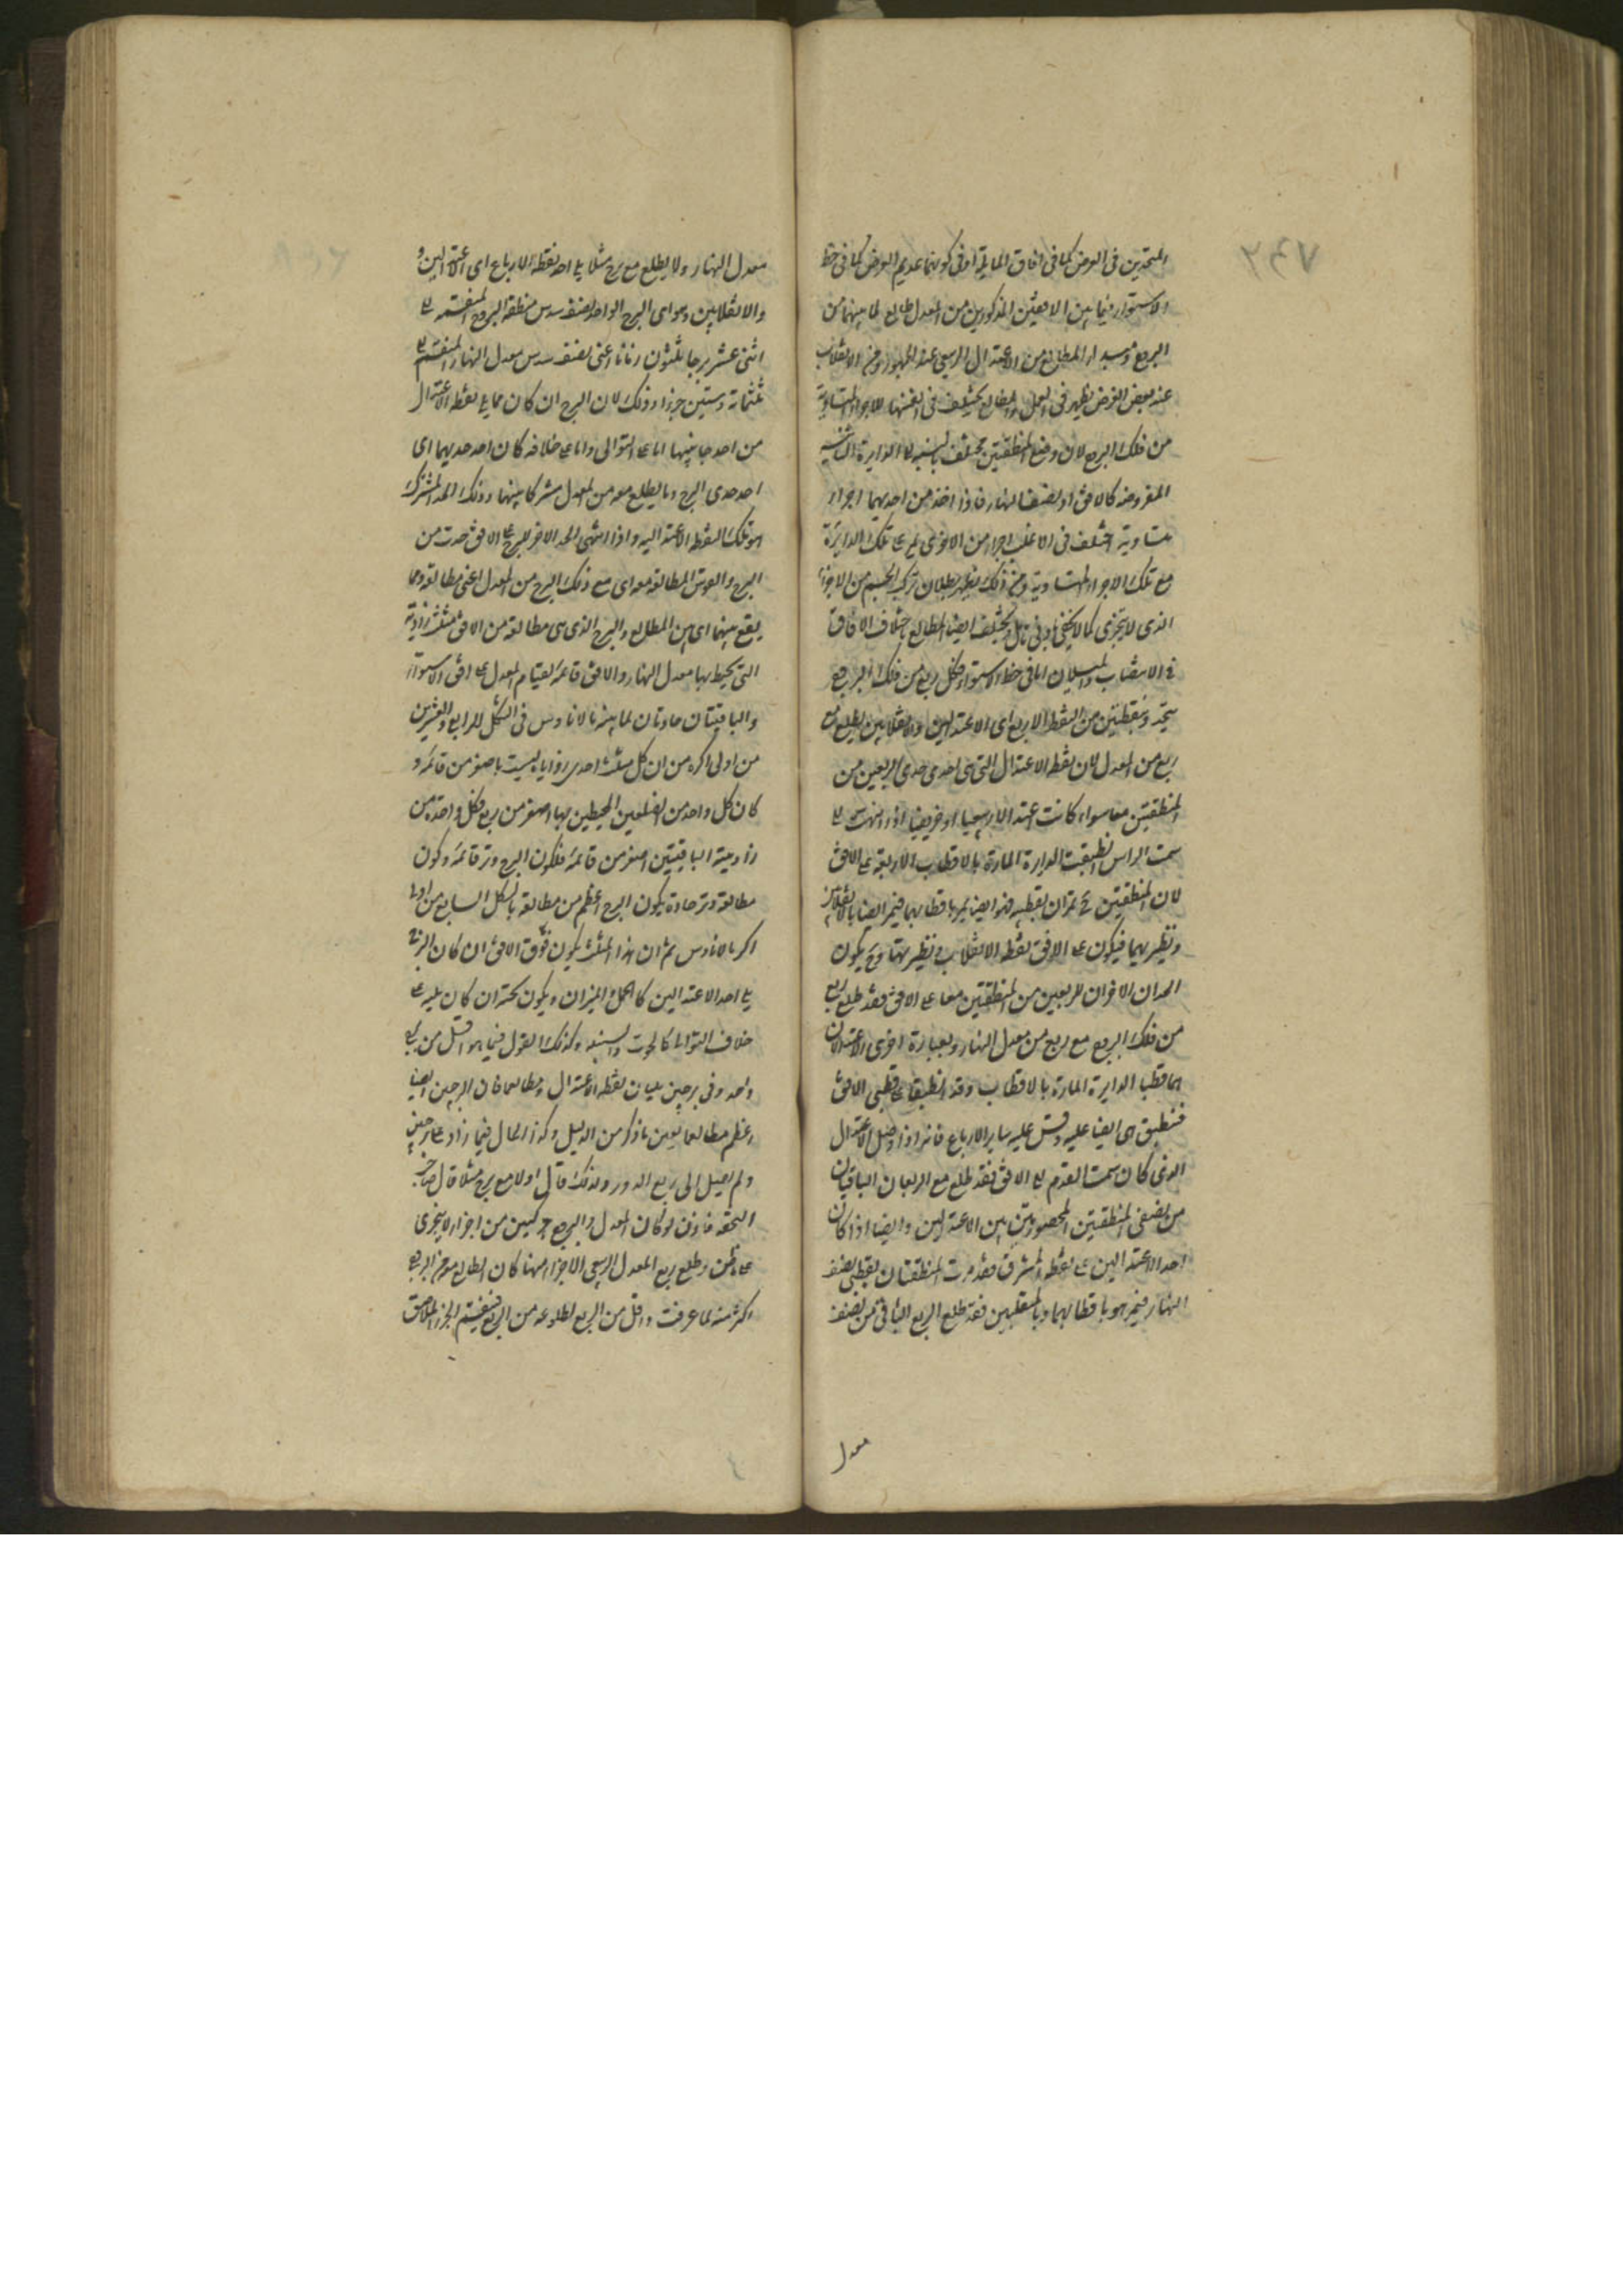 المتحدين فى العرض كما فى افاق المايلة او فى كونهما عديم العرض كما فى خط
الاستواء فيما بين الافقين المذكورين من المعدل طالع لما بينهما من
البروج ومبدا المطالع من الاعتدال الربيعى عند الجمهور ومن الانقلاب
عند بعض لغرض يظهر فى العمل والمطالع يختلف فى انفسها للاجزاء المتساوية
من فلك البروج لان وضع المنطقتين مختلف بالنسبة الى الدايرة الثانية
المفروضة كالافق او نصف النهار فاذا اخذ من احديهما اجزاء
متساوية اختلف فى الاغلب اجزاء من الاخرى تمر على تلك الدايرة
مع تلك الاجزاء المتساوية ومن ذلك يظهر بطلان تركب الجسم من الاجزاء
الذى لا يتجزى كما لا يخفى بادنى تامل ويختلف ايضا المطالع باختلاف الافاق
فى الانتصاب والميلان اما فى خط الاستواء فكل ربع من فلك البروج
يتحدد بنقطتين من النقط الاربع اى الاعتدالين والانقلابين يطلع مع
ربع من المعدل لان نقطة الاعتدال التى هى احدى حدى الربعين من
المنطقتين معا سواء كانت اعتدالا ربيعيا او خريفيا اذا انتهت الى
سمت الراس انطبقت الدايرة المارة بالاقطاب الاربعة على الافق
لان المنطقتين ح تمران بقطبيه فهو ايضا يمر باقطابهما فيمر ايضا بالانقلابين
ونظيريهما فيكون على الافق نقطة الانقلاب ونظيرتها وح يكون
الحدان الاخران للربعين من المنطقتين معا على الافق فقد طلع ربع
من فلك البروج مع ربع من معدل النهار وبعبارة اخرى الاعتدالان
هما قطبا الدايرة المارة بالاقطاب وقد انطبقا على قطبى الافق
فتنطبق هى ايضا عليه وقس عليه ساير الارباع فانه اذا وصل الاعتدال
الذى كان سمت القدم الى الافق فقد طلع مع الربعان الباقيان
من نصفى المنطقتين المحصورتين بين الاعتدالين وايضا اذا كان
احد الاعتدالين على نقطة المشرق فقد مرت المنطقتان بقطبى نصف
النهار فيمر هو باقطابهما وبالمنقلبين فقد طلع الربع الباقى من نصف
معدل
معدل النهار ولا يطلع مع برج مثلا يلى احد نقطة الارباع اى الاعتدالين و
والانقلابين وهو اى البرج الواحد نصف سدس منطقة البروج المنقسمة الى
اثنى عشر برجا ثلثون زمانا اعنى نصف سدس معدل النهار المنقسم الى
ثلثماية وستين جزءا وذلك لان البرج ان كان مما يلى نقطة الاعتدال
من احد جانبيها اما على التوالى واما على خلافه كان احد حديهما اى
احد حدى البرج وما يطلع معه من المعدل مشتركا بينهما وذلك الحد المشترك
هو تلك النقطة الاعتدالية واذا انتهى الحد الاخر للبرج الى الافق حدث من
البرج والقوس المطالعة معه اى مع ذلك البرج من المعدل اعنى مطالعه ومما
يقع بينهما اى بين المطالع والبرج الذى هى مطالعه من الافق مثلث زاويته
التى يحيط بها معدل النهار والافق قائمة لقيام المعدل على افق الاستواء
والباقيتان حادتان لما بينه مالاناوس فى الشكل الرابع والعشرين
من اولى اكره من ان كل مثلث احدى زواياه ليست باصغر من قائمة و
كان كل واحد من الضلعين المحيطين بها اصغر من ربع فكل واحدة من
زاويتيه الباقيتين اصغر من قائمة فلكون البرج وتر قائمة وكون
مطالعه وتر حادة يكون البرج اعظم من مطالعه بالشكل السابع من اولى
اكر مالاناوس ثم ان هذا المثلث يكون فوق الافق ان كان البرج
يلى احد الاعتدالين كالحمل والميزان ويكون تحته ان كان يليه على
خلاف التوالى كالحوت والسنبلة وكذلك القول فيما هو اقل من برج
واحد وفى برجين يليان نقطة الاعتدال ومطالعهما فان البرجين ايضا
اعظم مطالعهما بعين ما ذكر من الدليل وكذا الحال فيما زاد على برجين
ولم يصل الى ربع الدور ولذلك قال اولا مع برج مثلا قال صاحب
التحفة فاذن لو كان المعدل والبروج مركبين من اجزاء لا يتجزى
على وطلع ربع المعدل الربيعى الاجزاء منها كان الطالع معه من البروج
اكثر منه لما عرفت واقل من الربع لطلوعه من الربع فينقسم الجزء الملاصق